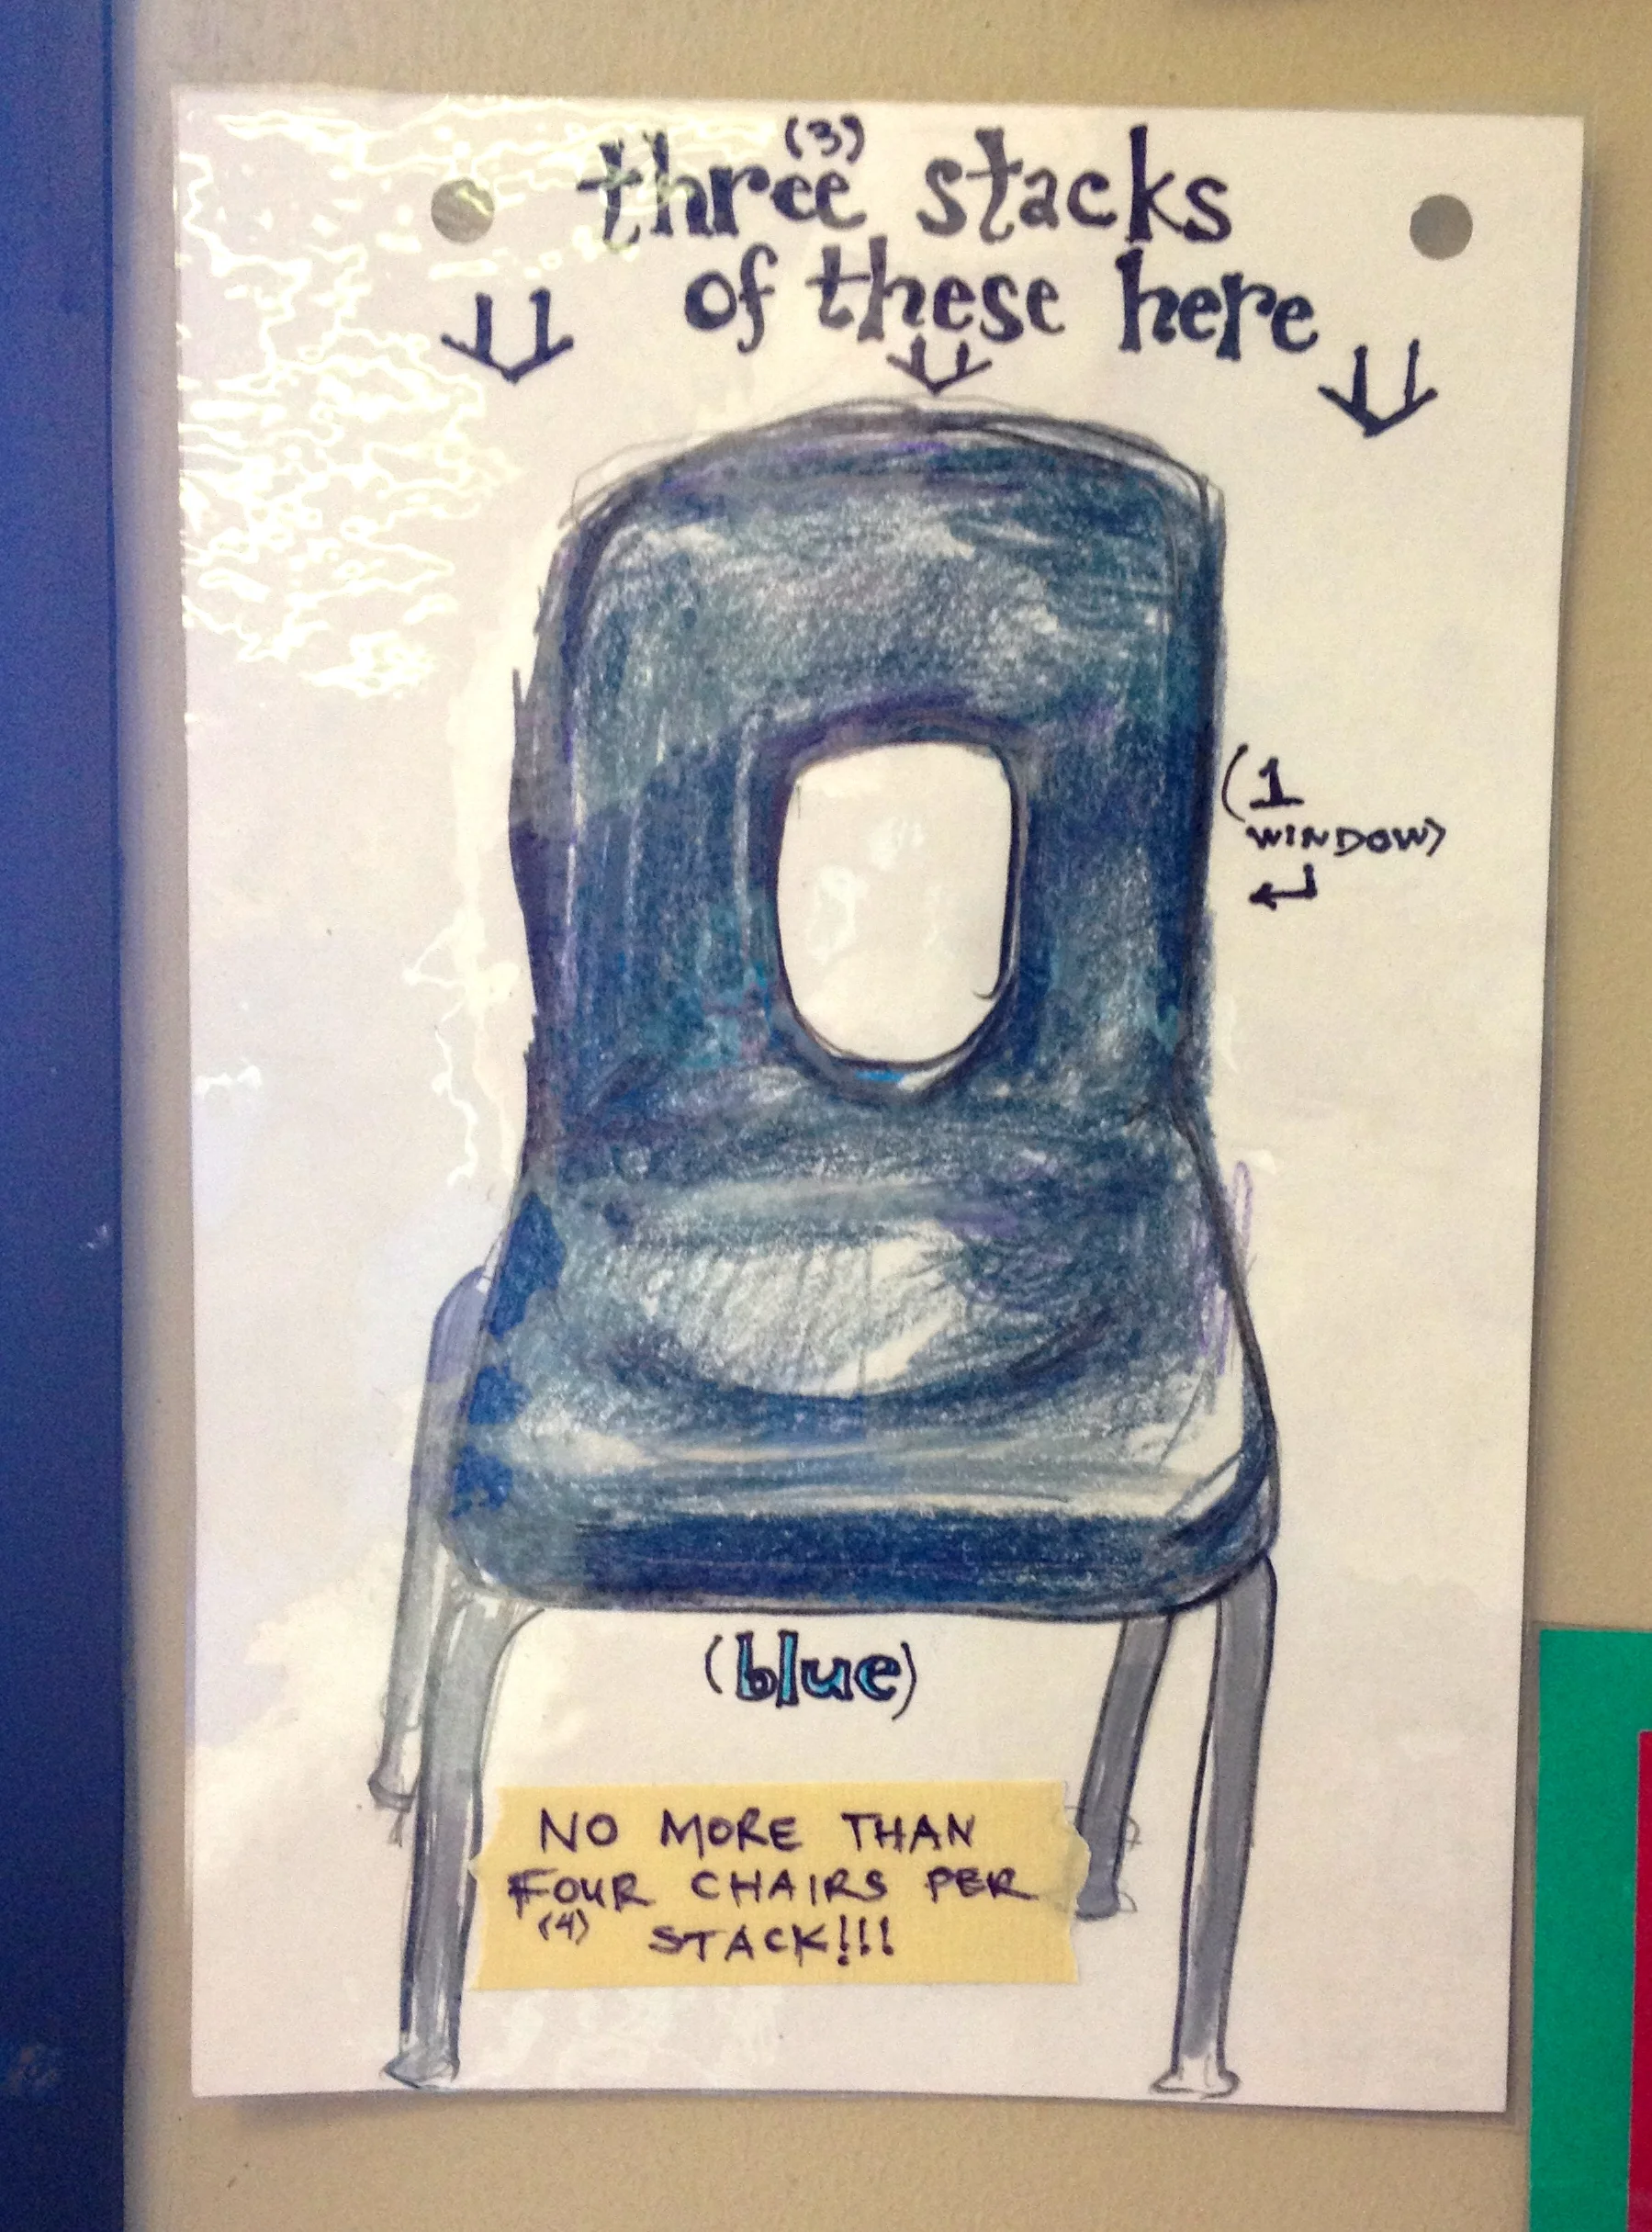 (3)
three stacks
of these here
(1
WINDOW)
(blue)
NO MORE THAN
FOUR CHAIRS PER
(4) STACK!!!